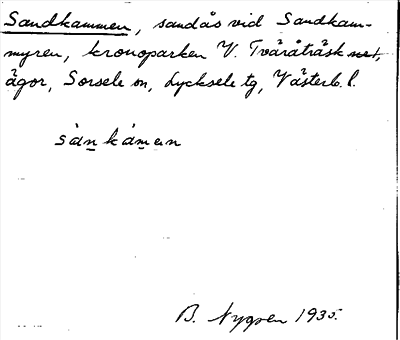 Sandkammen, sandås vid Sandkam-
myren, kronoparken V. Tväråträsk
ägor, Sorsele sn, Lycksele tg, Västerb. l.
sànkámen
B. Nygren 1935.